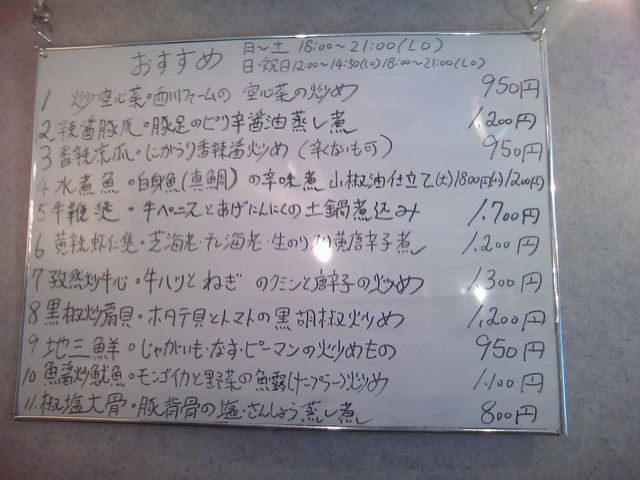 おすすめ 月〜土 18:00〜21:00(LO)
日・祝日12:00〜14:30(LO)18:00〜21:00(LO)
1 炒空心菜・西川ファームの 空心菜の炒め 950円
2 辣醤豚爪・豚足のピリ辛醤油蒸し煮 1,200円
3 香辣凉瓜・にがうり香辣醤炒め (辛くないもの) 950円
4 水煮魚・白身魚(真鯛)の辛味煮 山椒油仕立て(大)1800円(小)1200円
5 牛鞭煲・牛ペニスとあげにんにくの土鍋煮込み 1,700円
6 黄辣虾仁煲・芝海老・干し海老・生のり 黄唐辛子煮 1,200円
7 孜然炒牛心・牛ハツとねぎ のクミンと唐辛子の炒め 1,300円
8 黒椒炒扇貝・ホタテ貝とトマトの黒胡椒炒め 1,200円
9 地三鮮・じゃがいも・なす・ピーマンの炒めもの 950円
10 魚露炒魷魚・モンゴイカと野菜の魚露(ナンプラー)炒め 1,100円
11 椒塩大骨・豚背骨の塩・さんしょう蒸し煮 800円